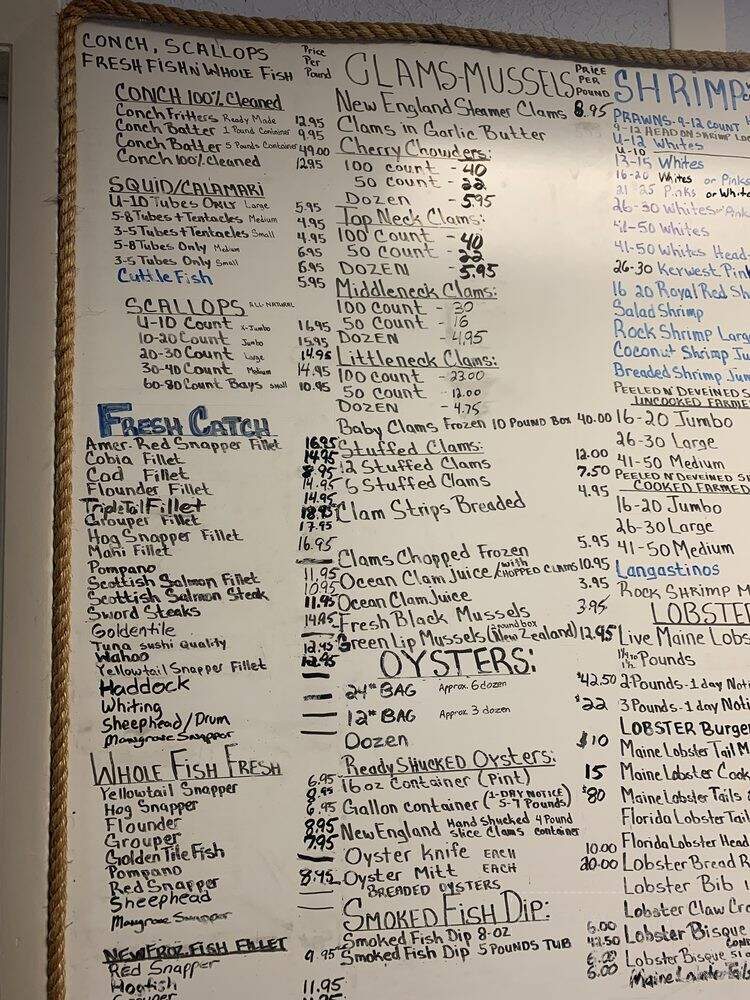 CONCH, SCALLOPS
FRESH FISH N' WHOLE FISH
Price Per Pound
CONCH 100% Cleaned
Conch Fritters Ready Made 12.95
Conch Batter 1 Pound Container 9.95
Conch Batter 5 Pounds Container 49.00
Conch 100% cleaned 12.95
SQUID/CALAMARI
U-10 Tubes ONLY Large 5.95
5-8 Tubes + Tentacles Medium 4.95
3-5 Tubes + Tentacles Small 4.95
5-8 Tubes Only Medium 6.95
3-5 Tubes Only Small 6.95
Cuttle Fish 5.95
SCALLOPS ALL-NATURAL
U-10 Count X-Jumbo 16.95
10-20 Count Jumbo 15.95
20-30 Count Large 14.95
30-40 Count Medium 14.95
60-80 Count Bays Small 10.95
FRESH CATCH
Amer. Red Snapper Fillet 16.95
Cobia Fillet 14.95
Cod Fillet 8.95
Flounder Fillet 14.95
Triple Tail Fillet 14.95
Grouper Fillet 18.95
Hog Snapper Fillet 17.95
Mahi Fillet 16.95
Pompano
Scottish Salmon Fillet 11.95
Scottish Salmon Steak 10.95
Sword Steaks 11.95
Goldentile 14.95
Tuna sushi Quality
Wahoo 12.95
Yellowtail Snapper Fillet 12.95
Haddock
Whiting
Sheephead/Drum
Mangrove Snapper
WHOLE FISH FRESH
Yellowtail Snapper 6.95
Hog Snapper 8.95
Flounder 6.95
Grouper 8.95
Golden Tile Fish 7.95
Pompano
Red Snapper 8.95
Sheephead
Mangrove Snapper
NEW FROZ. FISH FILLET
Red Snapper 9.95
Hogfish 11.95
Grouper
CLAMS-MUSSELS
PRICE PER POUND
New England Steamer Clams 8.95
Clams in Garlic Butter
Cherry Chowders:
100 count - 40
50 count - 22
Dozen - 5.95
Top Neck Clams:
100 Count - 40
50 Count - 22
DOZEN - 5.95
Middleneck Clams:
100 Count - 30
50 Count - 16
DOZEN - 4.95
Littleneck Clams:
100 Count - 23.00
50 Count - 12.00
DOZEN - 4.75
Baby Clams Frozen 10 POUND Box 40.00
Stuffed Clams:
12 Stuffed Clams 12.00
6 Stuffed Clams 7.50
Clam Strips Breaded 4.95
Clams Chopped Frozen 5.95
Ocean Clam Juice/with CHOPPED CLAMS 10.95
Ocean Clam Juice 3.95
Fresh Black Mussels 3.95
Green Lip Mussels (2 pound box New Zealand) 12.95
OYSTERS:
24# BAG Approx. 6 dozen $42.50
12# BAG Approx 3 dozen $22
Dozen $10
Ready SHUCKED Oysters:
16 oz Container (Pint) 15
Gallon container (1-DAY NOTICE 5-7 Pounds) $80
New England Hand shucked 4 Pound slice Clams container
Oyster Knife EACH 10.00
Oyster Mitt EACH 20.00
BREADED OYSTERS
SMOKED FISH DIP:
Smoked Fish Dip 8-oz 6.00
Smoked Fish Dip 5 POUNDS TUB 42.50
6.00
6.00
SHRIMP
PRAWNS. 9-12 COUNT
9-12 HEAD ON SHRIMP
U-12 Whites
U-10
13-15 Whites
16-20 Whites or Pinks
21-25 Pinks or White
26-30 Whites or Pink
41-50 Whites
41-50 Whites Head-
26-30 Kerwest Pink
16 20 Royal Red Sh
Salad Shrimp
Rock Shrimp Larg
Coconut Shrimp Ju
Breaded Shrimp Jum
PEELED N' DEVEINED S
UNCOOKED FARME
16-20 Jumbo
26-30 Large
41-50 Medium
PEELED N' DEVEINED S
COOKED FARMED
16-20 Jumbo
26-30 Large
41-50 Medium
Langastinos
Rock Shrimp M
LOBSTE
Live Maine Lobs
1¼ to 1½ Pounds
2 Pounds-1 day Noti
3 Pounds-1 day Noti
LOBSTER Burger
Maine Lobster Tail M
Maine Lobster Cook
Maine Lobster Tails
Florida Lobster Tail
Florida Lobster Head
Lobster Bread R
Lobster Bib 1
Lobster Claw Cr
Lobster Bisque
Lobster Bisque 51 o
Maine Lobster